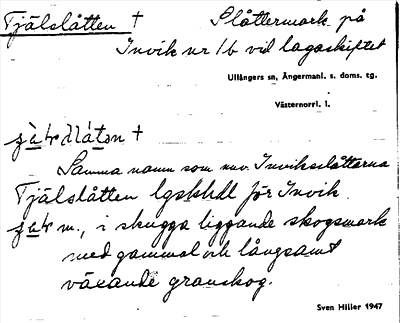 Tjälslåtten †
Slåttermark på
Invik nr 1b vid lagaskiftet
Ullångers sn, Ångermanl. s. doms. tg.
Västernorrl. l.
†
Samma namn som nuv. Inviksslåttarna
Tjälslåtten lgskhdl för Invik.
m., i skugga liggande skogsmark
med gammal och långsamt
växande granskog.
Sven Hiller 1947